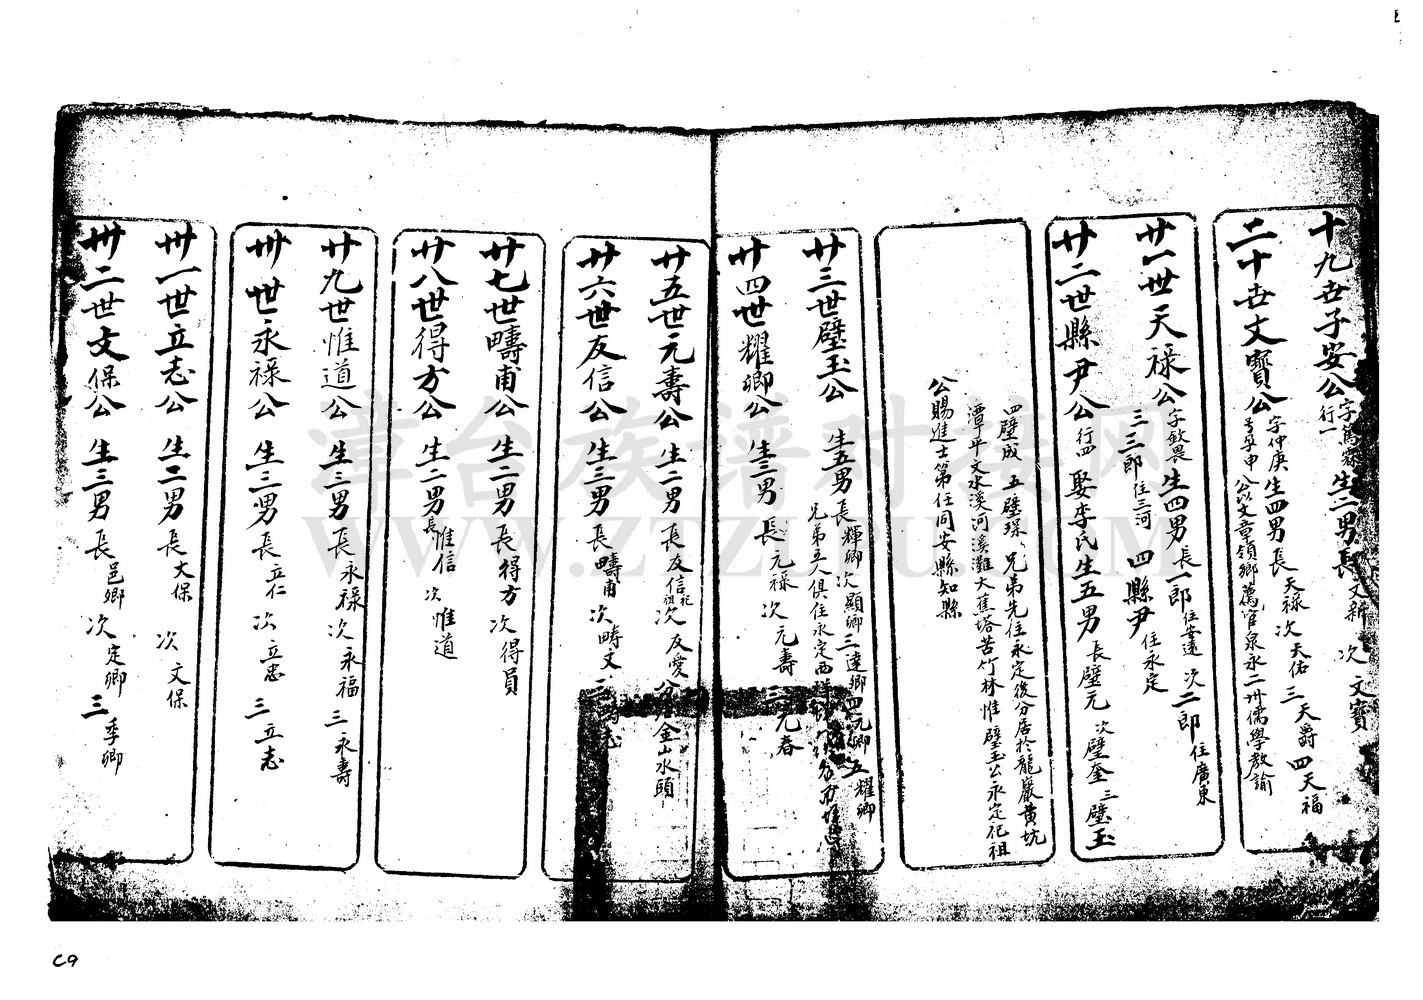 十九世子安公 字篤齋 行一 生二男 長文新 次文寶
二十世文寶公 字仲庚 生四男 長天祿 次天佑 三天爵 四天福
公以文章領鄉薦官泉永二州儒學教諭
廿一世天祿公 字欽畏 生四男 長一郎 住安遠 次二郎 住廣東
三三郎住三河 四縣尹 住永定
廿二世縣尹公 行四 娶李氏生五男 長璧元 次璧奎 三璧玉
四璧成 五璧琛、兄弟先住永定後分居於龍巖黃坑
潭平文水溪河溪灘大蕉塔苦竹林惟璧玉公永定祀祖
公賜進士第任同安縣知縣
廿三世璧玉公 生五男 長輝卿 次顯卿 三達卿 四元卿 五耀卿
兄弟五人俱住永定西
廿四世耀卿公 生三男 長元祿 次元壽 三元春
廿五世元壽公 生二男 長友信祀祖 次友愛分 金山水頭
廿六世友信公 生三男 長疇甫 次疇文 三
廿七世疇甫公 生二男 長得方 次得員
廿八世得方公 生二男 長惟信 次惟道
廿九世惟道公 生三男 長永祿 次永福 三永壽
卅世永祿公 生三男 長立仁 次立忠 三立志
卅一世立志公 生二男 長大保 次文保
卅二世文保公 生三男 長邑卿 次定卿 三季卿
漳台族谱对接网
WWW.ZTZUPU.COM
C9